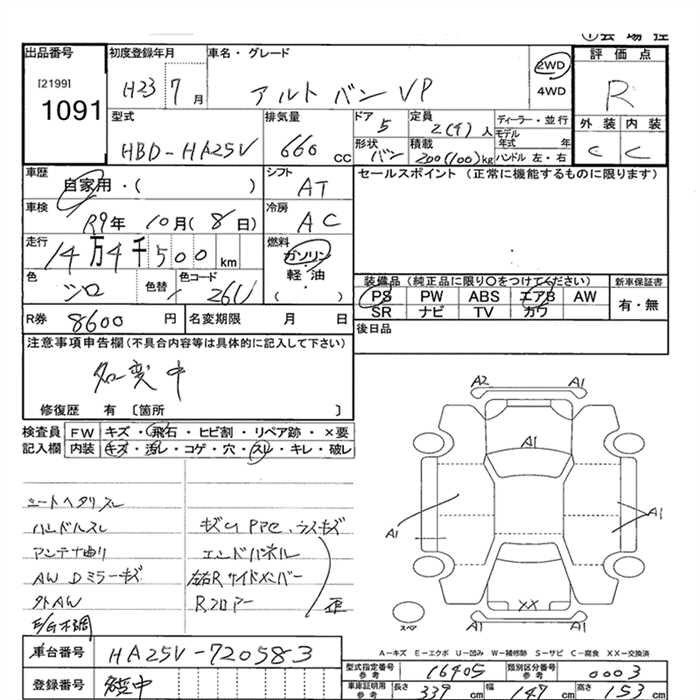 出品番号
[2199]
1091
初度登録年月
H23 7 月
車名・グレード
アルト バン VP
2WD
4WD
評価点
R
外装 内装
C C
型式
HBD-HA25V
排気量
660 cc
ドア 5
形状 バン
定員 2(4)人
積載 200(100)kg
ディーラー・並行
モデル年式 年
ハンドル 左・右
車歴
自家用・( )
シフト
AT
セールスポイント (正常に機能するものに限ります)
車検
R9年 10月(8日)
冷房
AC
走行
14万4千500km
燃料
ガソリン
軽・油
( )
色
シロ
色替
色コード
26U
装備品(純正品に限り○をつけてください)
PS PW ABS エアB AW
SR ナビ TV カワ
新車保証書
有・無
R券 8600 円
名変期限 月 日
後日品
注意事項申告欄(不具合内容等は具体的に記入して下さい)
名変中
修復歴 有 〔箇所 〕
検査員
記入欄
FW キズ・飛石・ヒビ割・リペア跡・×要
内装 キズ・汚レ・コゲ・穴・スレ・キレ・破レ
シートヘタリスレ
ハンドルスレ
アンテナ曲リ
AW Dミラーキズ
外AW
E/G不調
エンドパネル
左右Rサイドメンバー
Rフロアー
歪
A2 A1
A1
A1
A1
A1
XX
スペア
A－キズ E－エクボ U－凹み W－補修跡 S－サビ C－腐食 XX－交換済
車台番号
HA25V-720583
登録番号
名変中
型式指定番号
参考
16405
類別区分番号
参考
0003
車庫証明用
参考
長さ 339 cm
幅 147 cm
高さ 153 cm